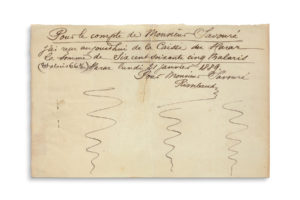 Pour le compte de Monsieur Savouré
j'ai reçu aujourd'hui de la Caisse du Harar
la somme de Six cent soixante cinq thalaris
Harar lundi 21 janvier 1889
Pour Monsieur Savouré
Rimbaud